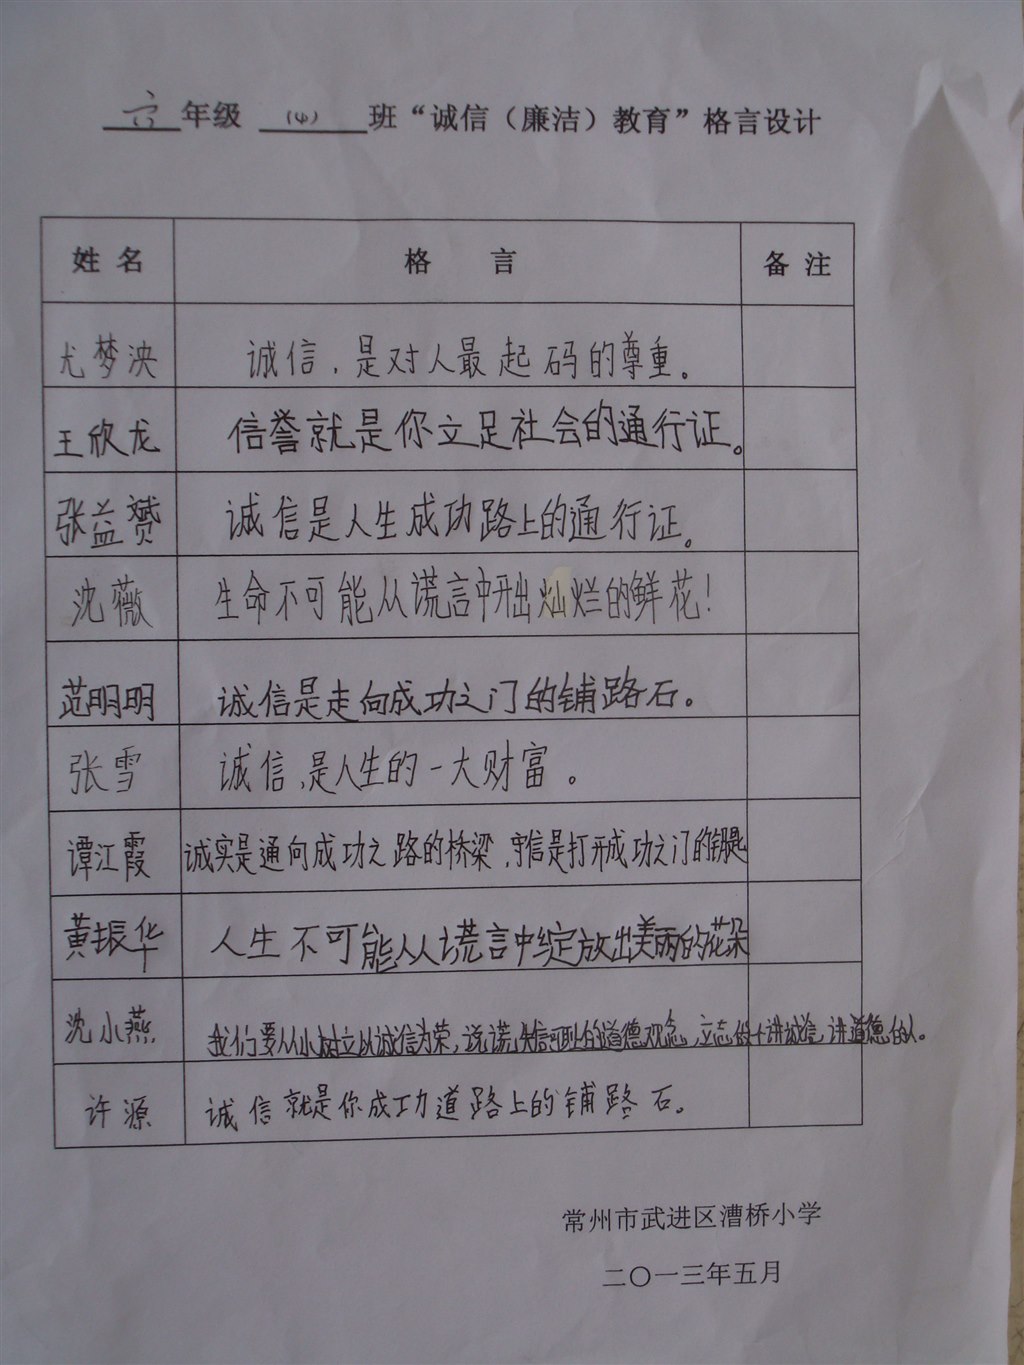 六年级 (4) 班“诚信（廉洁）教育”格言设计
姓名 格言 备注
尤梦泱 诚信，是对人最起码的尊重。
王欣龙 信誉就是你立足社会的通行证。
张益赟 诚信是人生成功路上的通行证。
沈薇 生命不可能从谎言中开出灿烂的鲜花！
范明明 诚信是走向成功之门的铺路石。
张雪 诚信，是人生的一大财富。
谭江霞 诚实是通向成功之路的桥梁，守信是打开成功之门的钥匙
黄振华 人生不可能从谎言中绽放出美丽的花朵
沈小燕 我们要从小树立以诚信为荣，说谎、失信可耻的道德观念，立志做个讲诚信，讲道德的人。
许源 诚信就是你成功道路上的铺路石。
常州市武进区漕桥小学
二〇一三年五月